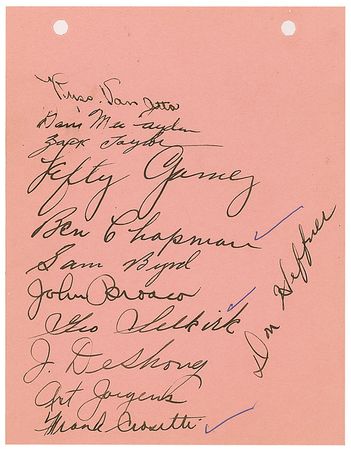 Russ. Van Atta
Dan Mac
Zack Taylor
Lefty Gomez
Ben Chapman
Sam Byrd
John Broaca
Geo Selkirk
J. DeShong
Art Jorgens
Frank Crosetti
Don Heffner